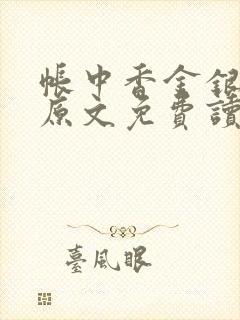 帳中香金銀
原文免費讀
臺風眼